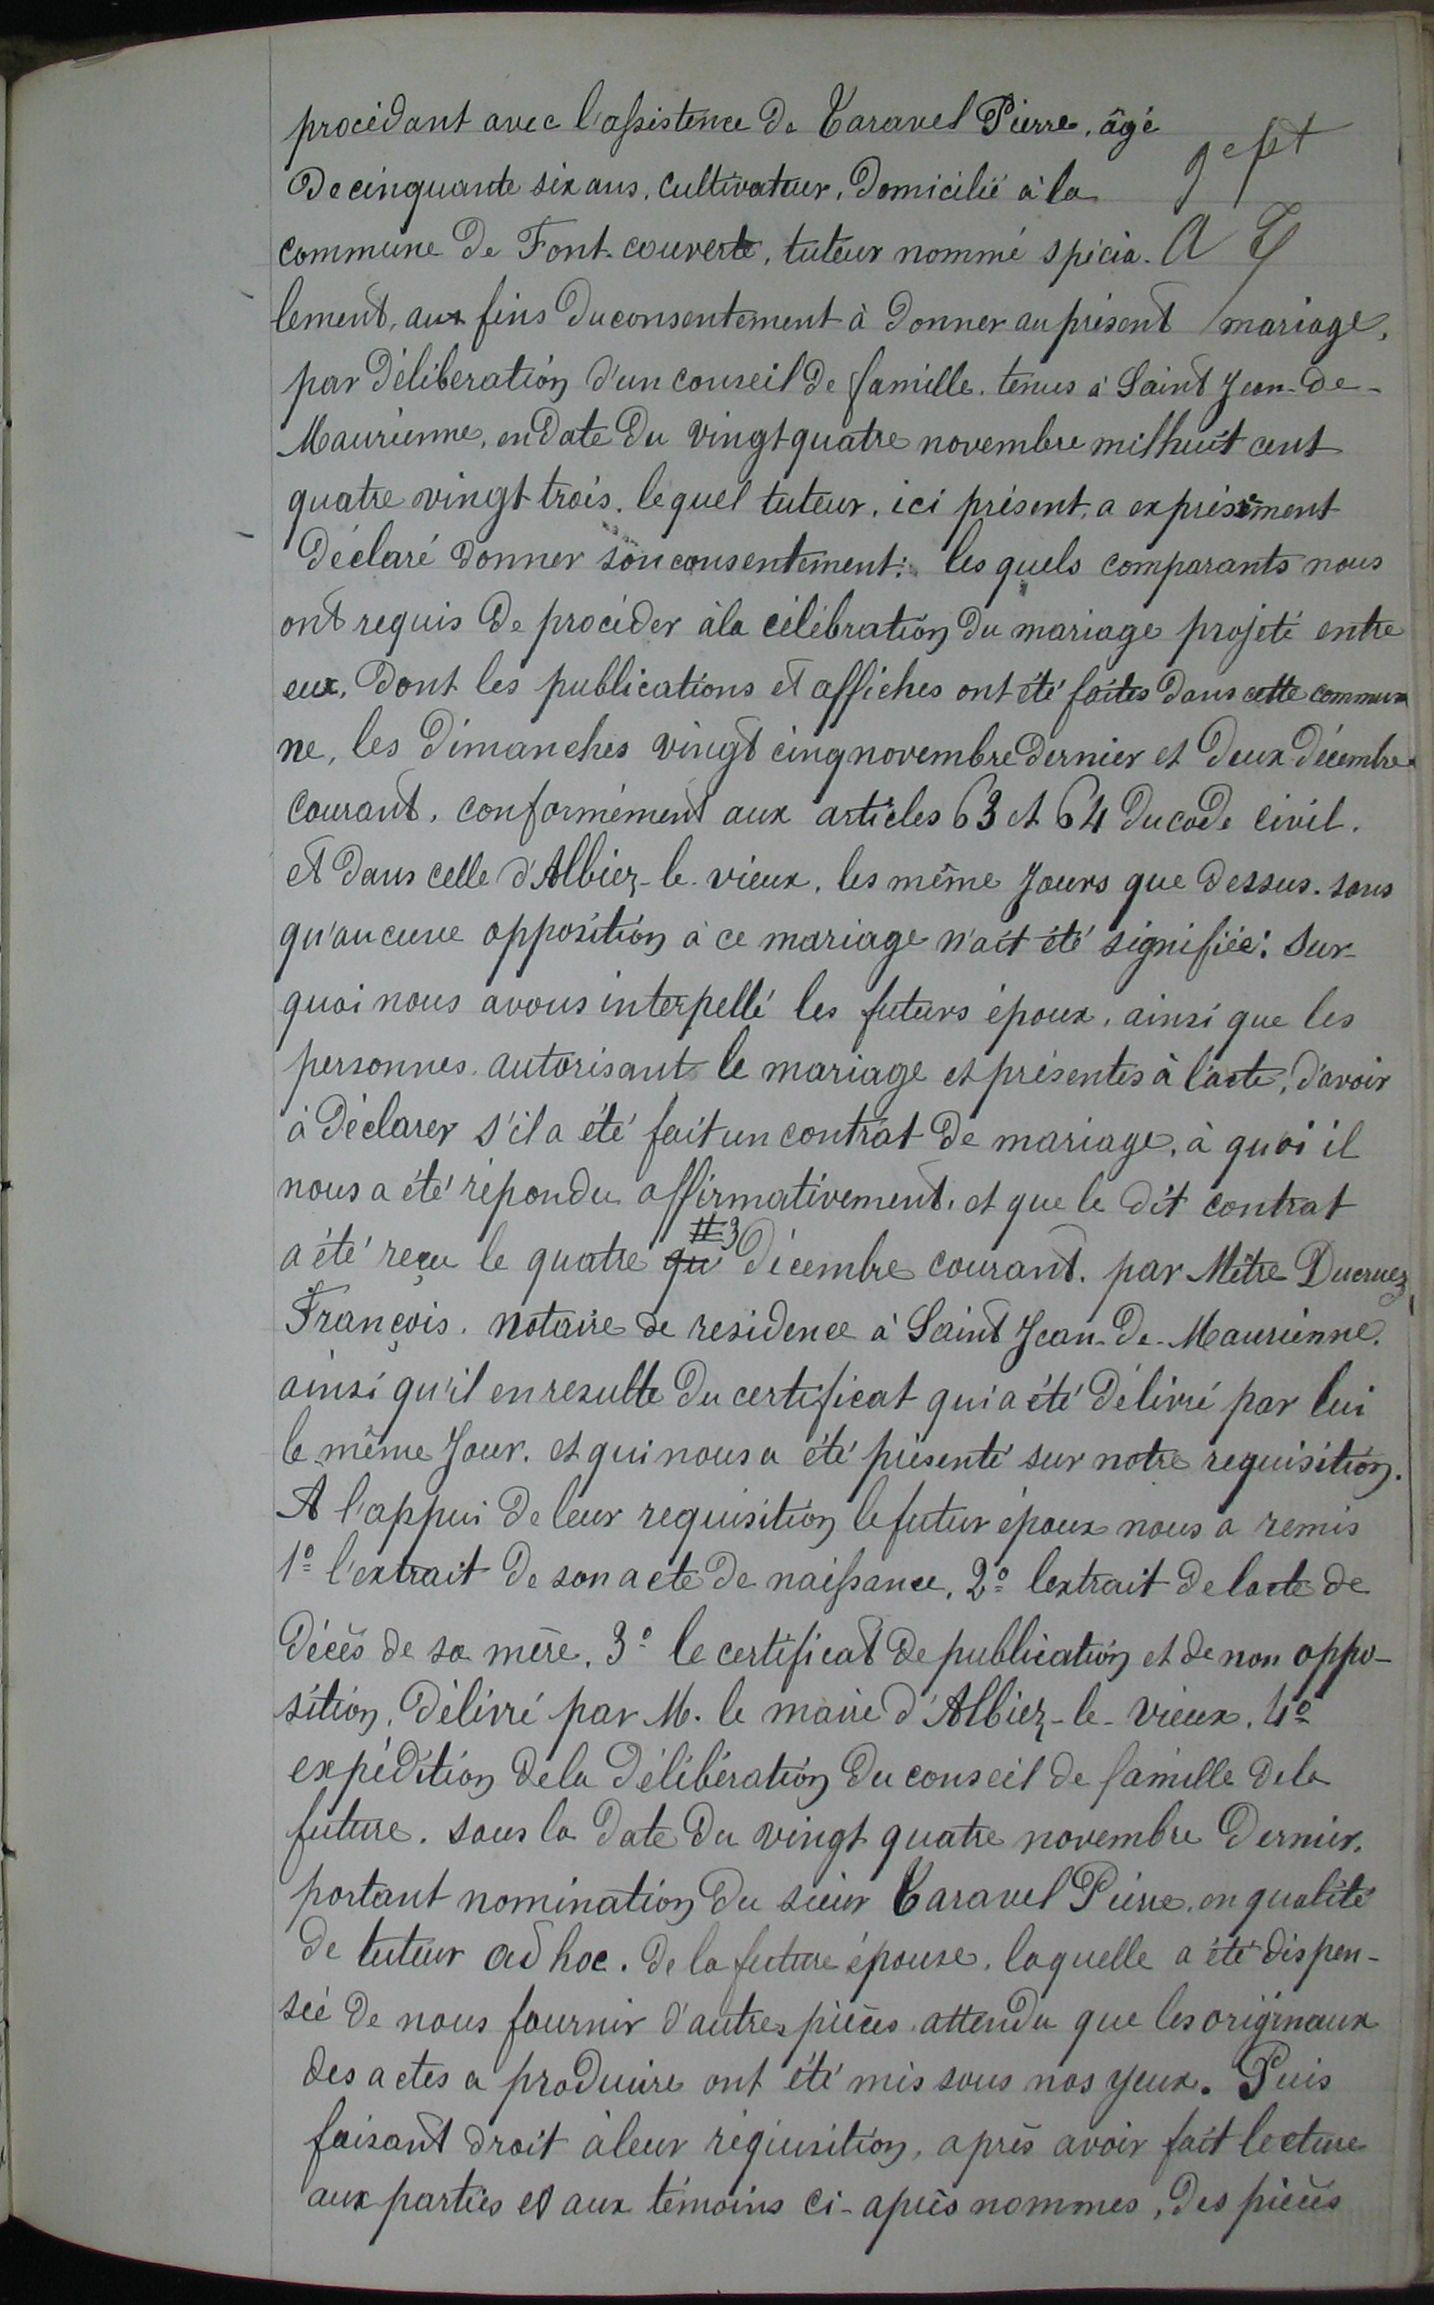 procédant avec l'assistence de Taravel Pierre, âgé
De cinquante six ans, cultivateur, domicilié à la
commune de Font-couverte, tuteur nommé spécia-
lement, aux fins du consentement à donner au présent mariage,
par délibération d'un conseil de famille tenus à Saint Jean-de-
Maurienne, en date du vingt quatre novembre mil huit cent
quatre vingt trois. lequel tuteur, ici présent, a expressément
déclaré donner son consentement: les quels comparants nous
ont requis de procéder à la célébration du mariage projeté entre
eux, dont les publications et affiches ont été faites dans cette commu
ne, les dimanches vingt cinq novembre dernier et deux décembre
courant, conformément aux articles 63 et 64 du code civil.
et dans celle d'Albiez-le-vieux, les même jours que dessus. sans
qu'aucune opposition à ce mariage n'ait été signifiée: Sur-
quoi nous avons interpellé les futurs époux, ainsi que les
personnes autorisant le mariage et présentes à l'acte, d'avoir
à déclarer s'il a été fait un contrat de mariage, à quoi il
nous a été répondu affirmativement, et que le dit contrat
a été reçu le quatre qu décembre courant. par Mètre Ducruez
François, notaire de residence à Saint Jean-de-Maurienne.
ainsi qu'il en resulte du certificat qui a été délivré par lui
le même jour. et qui nous a été présenté sur notre requisition.
A l'appui de leur requisition le futur époux nous a remis
1º l'extrait de son acte de naissance, 2º lextrait de lacte de
décès de sa mère, 3º le certificat de publication et de non oppo-
sition, délivré par M. le maire d'Albiez-le-vieux, 4º
expédition de la délibération du conseil de famille de la
future. sous la date du vingt quatre novembre dernier,
portant nomination du sieur Taravel Pierre, en qualité
de tuteur ad hoc. de la future épouse, laquelle a été dispen-
sée de nous fournir d'autres pièces attendu que les originaux
des actes a produire ont été mis sous nos yeux. Puis
faisant droit à leur réquisition, après avoir fait lecture
aux parties et aux témoins ci-après nommes, des pièces